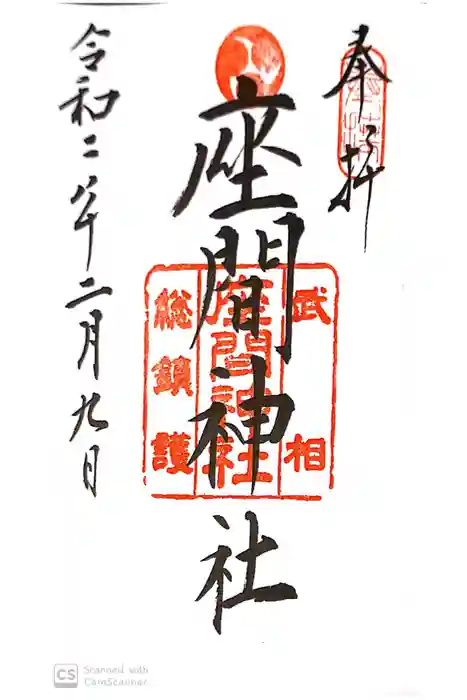 奉拝
座間神社
武相
座間神社
総鎮護
令和二年二月九日
CS Scanned with
CamScanner